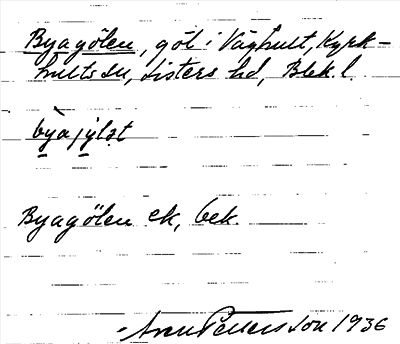 Byagölen, göl i Vághult, Kyrk-
hults sn, Listers hd, Blek. l.
byajylət
Byagölen ek, bek.
Sven Pettersson 1936